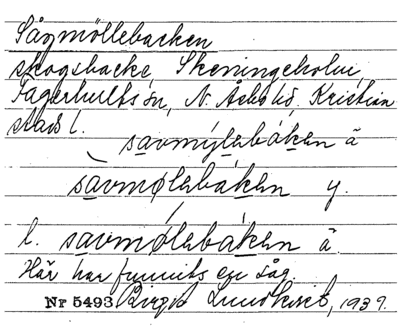 Sågmöllebacken
skogsbacke, Skeningeholm,
Fagerhults sn, N. Åsbo hd, Kristian
stads l.
savmýlabákan ä
savmølabákan y.
l. savmǿlabákan ä.
Här har funnits en såg.
Nr 5493 Birgit Lundkvist, 1939.